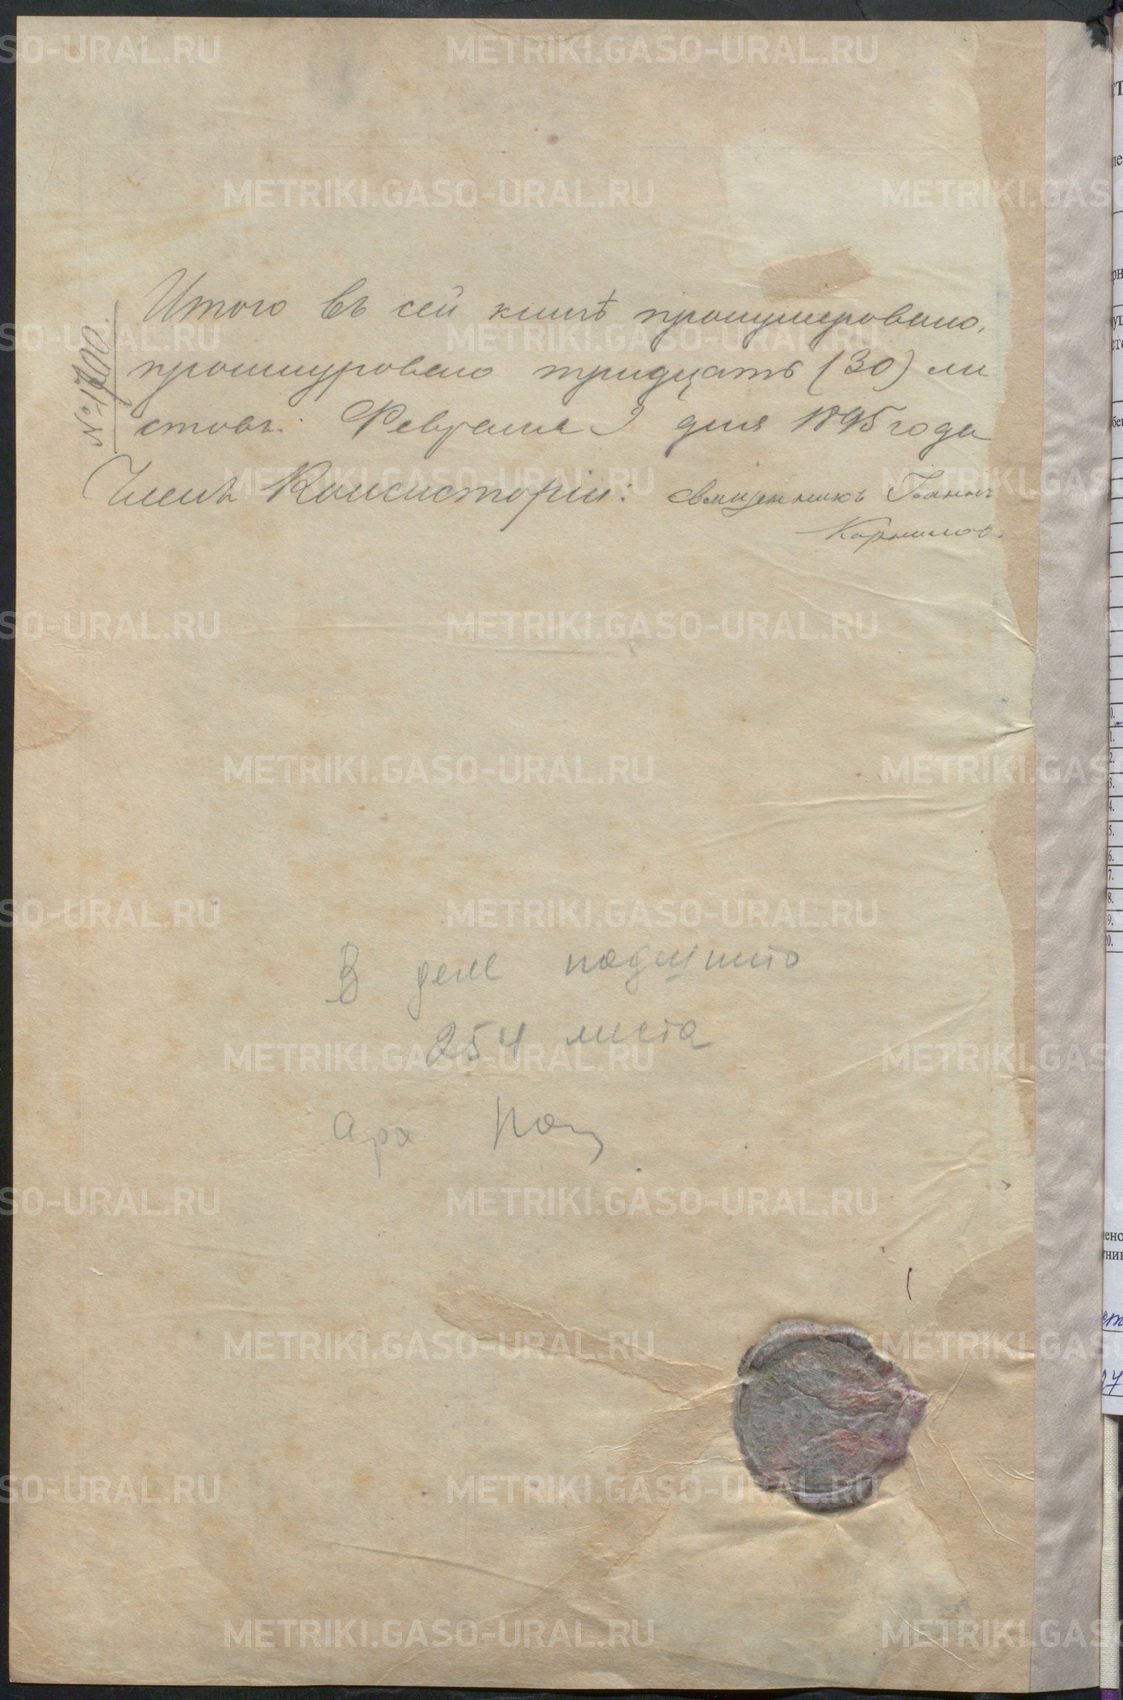 № 1700.
Итого въ сей книгѣ пронумеровано,
прошнуровано тридцать (30) ли
стовъ. Февраля 9 дня 1895 года
Членъ Консисторіи: священникъ Іоаннъ
Корнилов.
В деле подшито
254 листа
Арх
METRIKI.GASO-URAL.RU